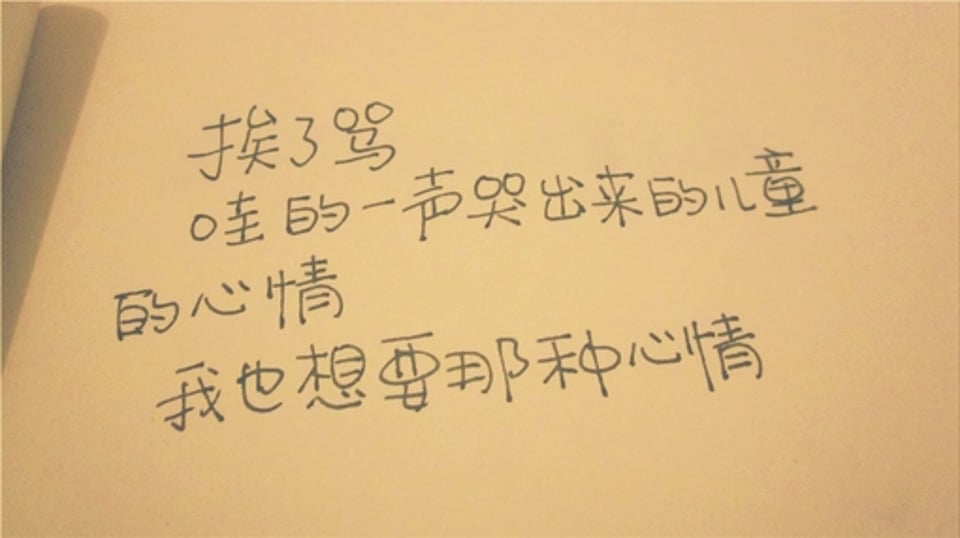 挨了骂
哇的一声哭出来的儿童
的心情
我也想要那种心情